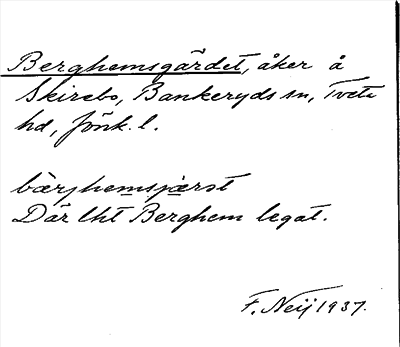 Berghemsgärdet, åker å
Skirebo, Bankeryds sn, Tveta
hd, Jönk. l.
bærjhemsjærst
Där lht Berghem legat.
F. Neij 1937.